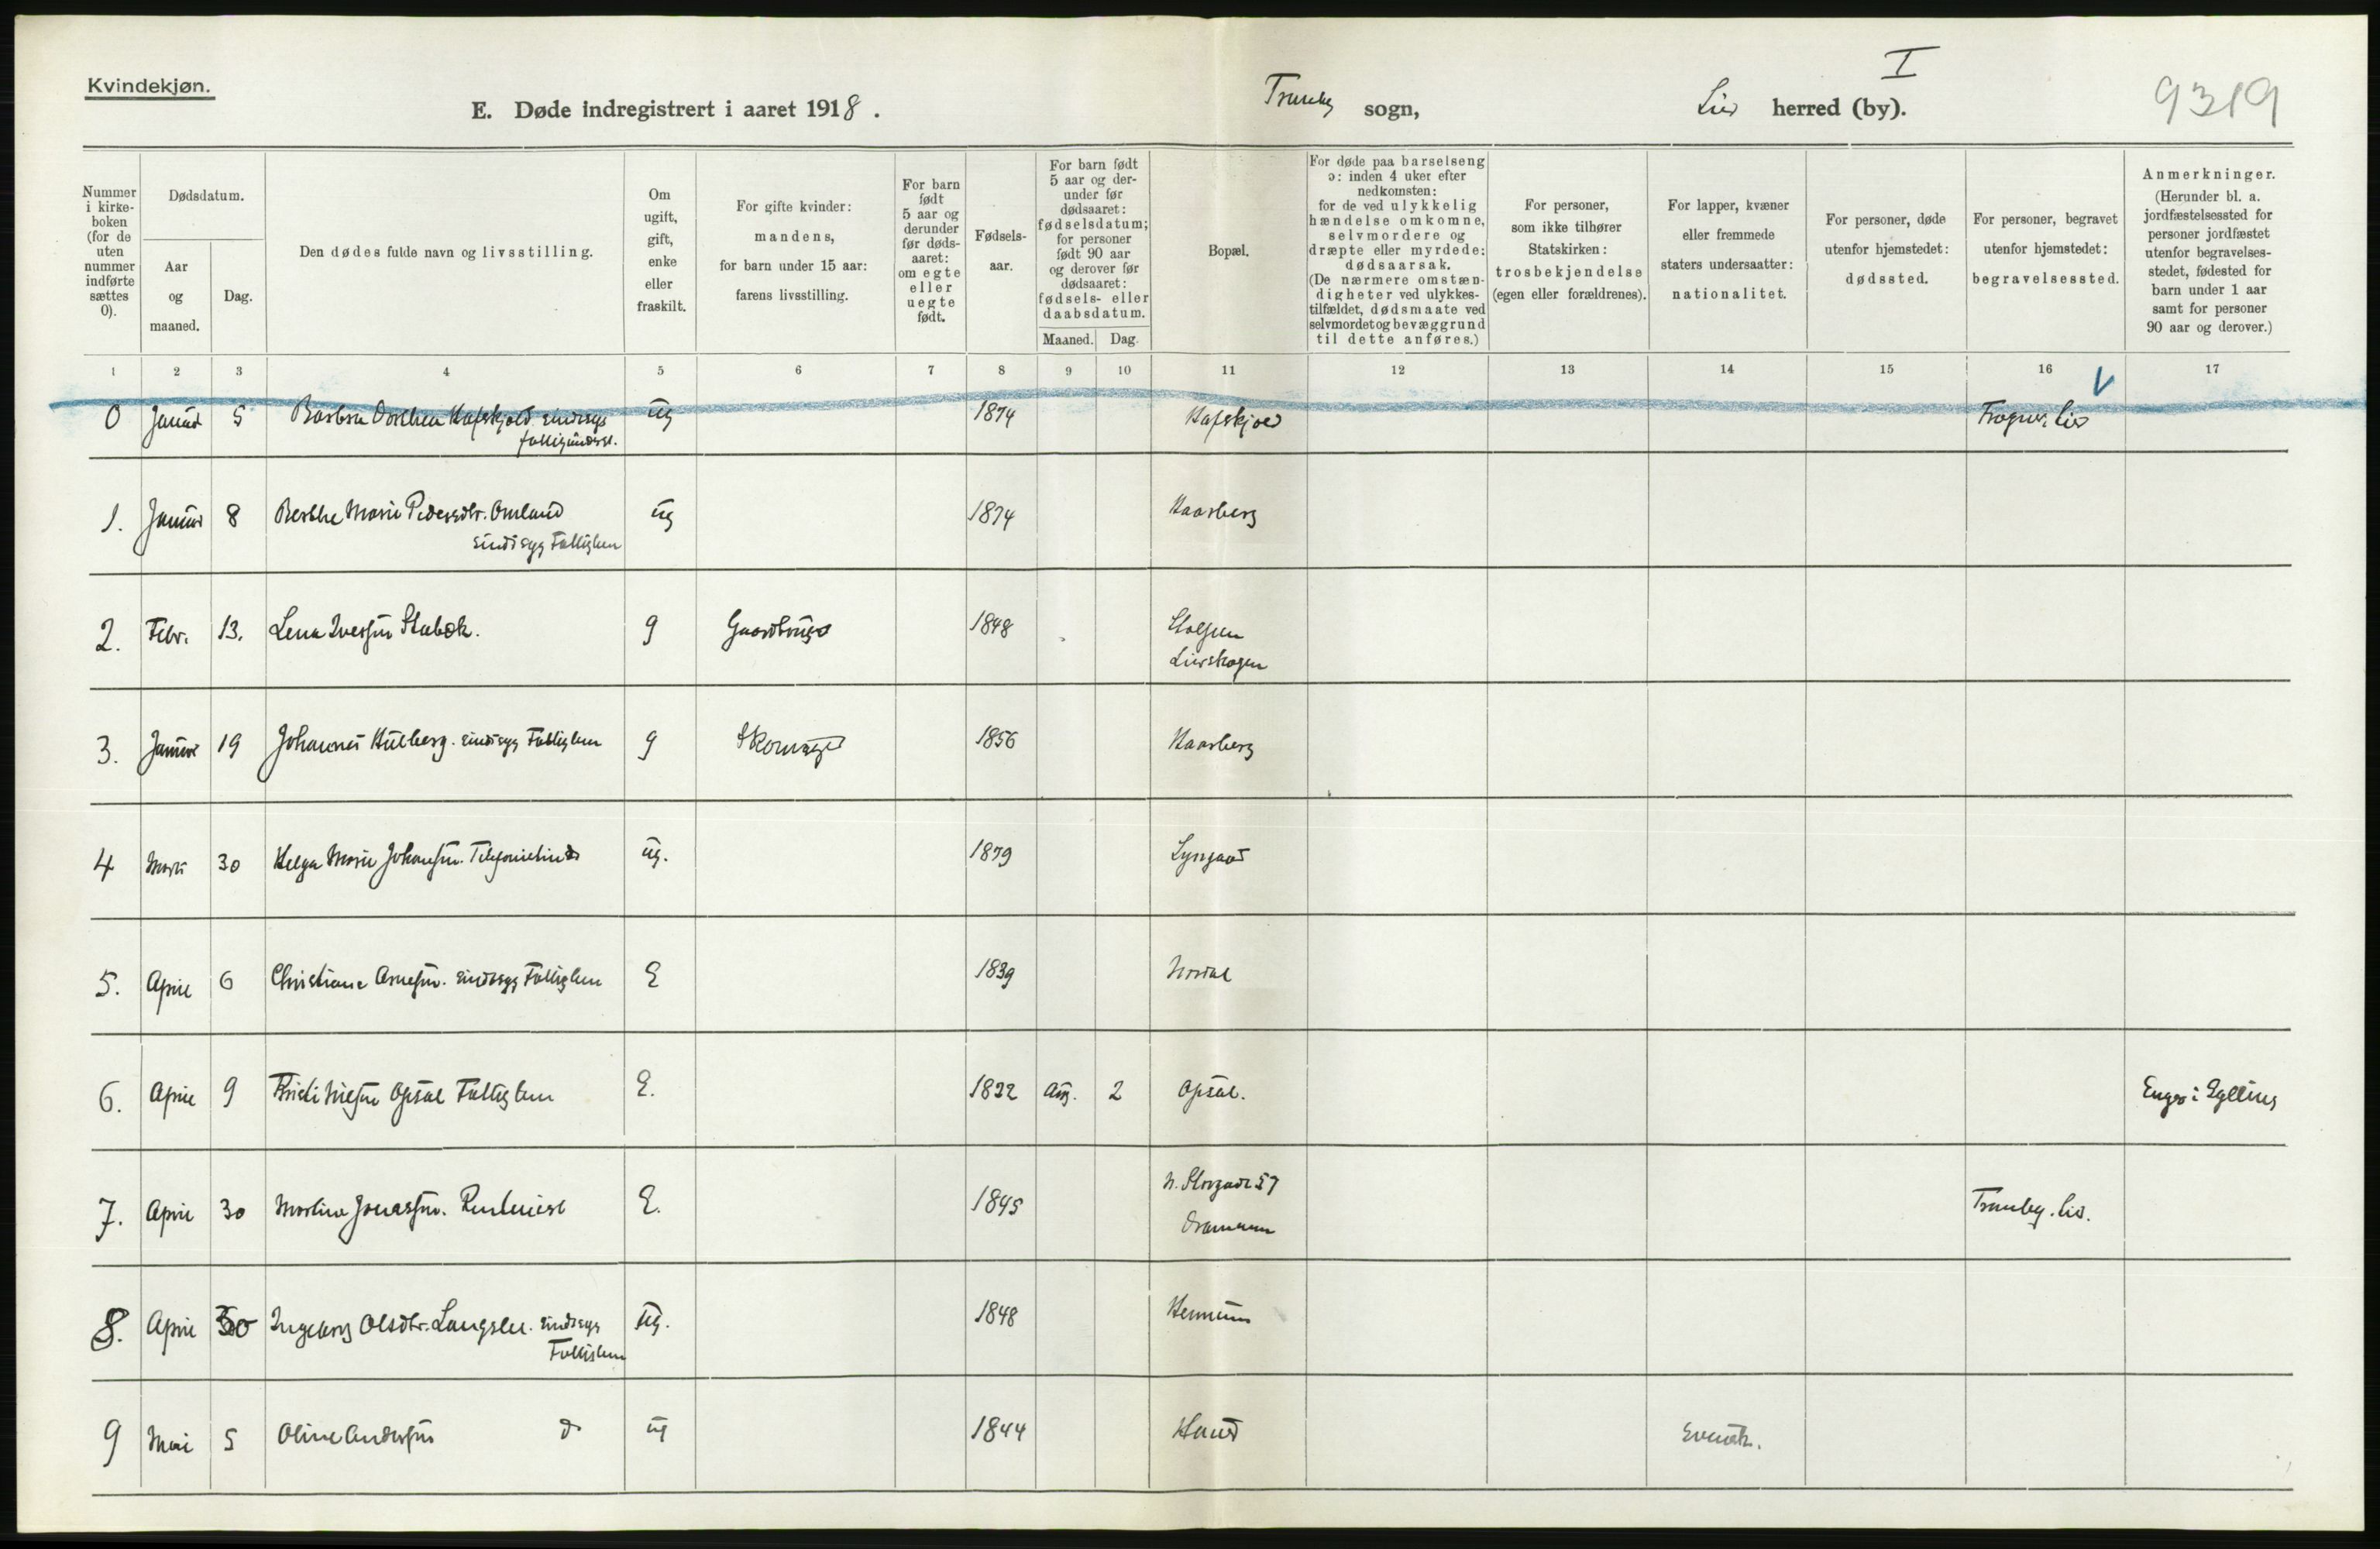 Kvindekjøn.
E. Døde indregistrert i aaret 1918.
Tranby sogn,
Lier herred (by).
I
9319
Nummer i kirkeboken (for de uten nummer indførte sættes 0).
Dødsdatum.
Aar og maaned.
Dag.
Den dødes fulde navn og livsstilling.
Om ugift, gift, enke eller fraskilt.
For gifte kvinder: mandens, for barn under 15 aar: farens livsstilling.
For barn født 5 aar og derunder før dødsaaret: om egte eller uegte født.
Fødselsaar.
For barn født 5 aar og derunder før dødsaaret: fødselsdatum; for personer født 90 aar og derover før dødsaaret: fødsels- eller daabsdatum.
Maaned.
Dag.
Bopæl.
For døde paa barselseng ɔ: inden 4 uker efter nedkomsten: for de ved ulykkelig hændelse omkomne, selvmordere og dræpte eller myrdede: dødsaarsak. (De nærmere omstændigheter ved ulykkestilfældet, dødsmaate ved selvmordet og bevæggrund til dette anføres.)
For personer, som ikke tilhører Statskirken: trosbekjendelse (egen eller forældrenes).
For lapper, kvæner eller fremmede staters undersaatter: nationalitet.
For personer, døde utenfor hjemstedet: dødssted.
For personer, begravet utenfor hjemstedet: begravelsessted.
Anmerkninger. (Herunder bl. a. jordfæstelsessted for personer jordfæstet utenfor begravelsesstedet, fødested for barn under 1 aar samt for personer 90 aar og derover.)
1 2 3 4 5 6 7 8 9 10 11 12 13 14 15 16 17
0 Januar 5 Barbra Dorthea Hafskjold sindssyg ug 1874 Hafskjold Frogner, Lier
fattigunderst.
1. Januar 8 Berthe Marie Pedersdtr. Omland ug 1874 Haarberg
sindssyg Fattiglem
2. Febr. 13. Lena Iversen Stabæk. g Gaardbruger 1848
Lierskogen
3. Januar 19 Johanne Hulberg. sindssyg Fattiglem g Skomager 1856 Haarberg
4 Marts 30 Helga Marie Johansen. Telefonistinde ug. 1879 Lyngaas
5. April 6 Christiane Arnesen. sindssyg Fattiglem E 1839
6. April 9 Nielsen Opsal Fattiglem E. 1822 Aug. 2 Opsal. Enger i Eggedal
7. April 30 Martine Jonassen. Rentenist E. 1845 N. Storgade 57 Tranby. Lier.
Drammen
8. April 30 Ingeborg Olsdtr. Langslet. sindssyg ug. 1848 Hennum
Fattiglem
9 Mai 5 Oline Andersen do ug 1844 Svensk.